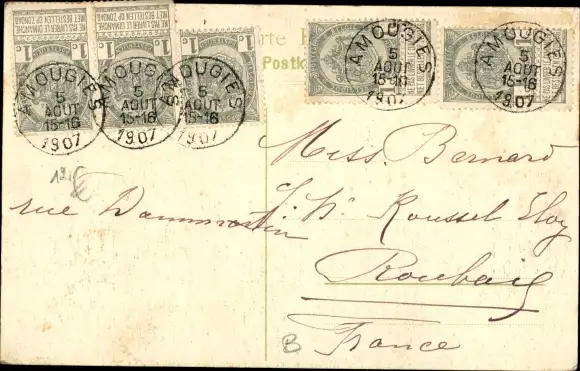 NE PAS LIVRER LE DIMANCHE
NIET BESTELLEN OP ZONDAG
NE PAS LIVRER LE DIMANCHE
NIET BESTELLEN OP ZONDAG
1c 1c 1c
AMOUGIES
5
AOUT
15-16
1907
AMOUGIES
5
AOUT
15-16
1907
AMOUGIES
5
AOUT
15-16
1907
AMOUGIES
5
AOUT
15-16
1907
AMOUGIES
5
AOUT
15-16
1907
Carte
Postk
Miss. Bernard
Roussel Eloy
rue Dammartin
Roubaix
France
B